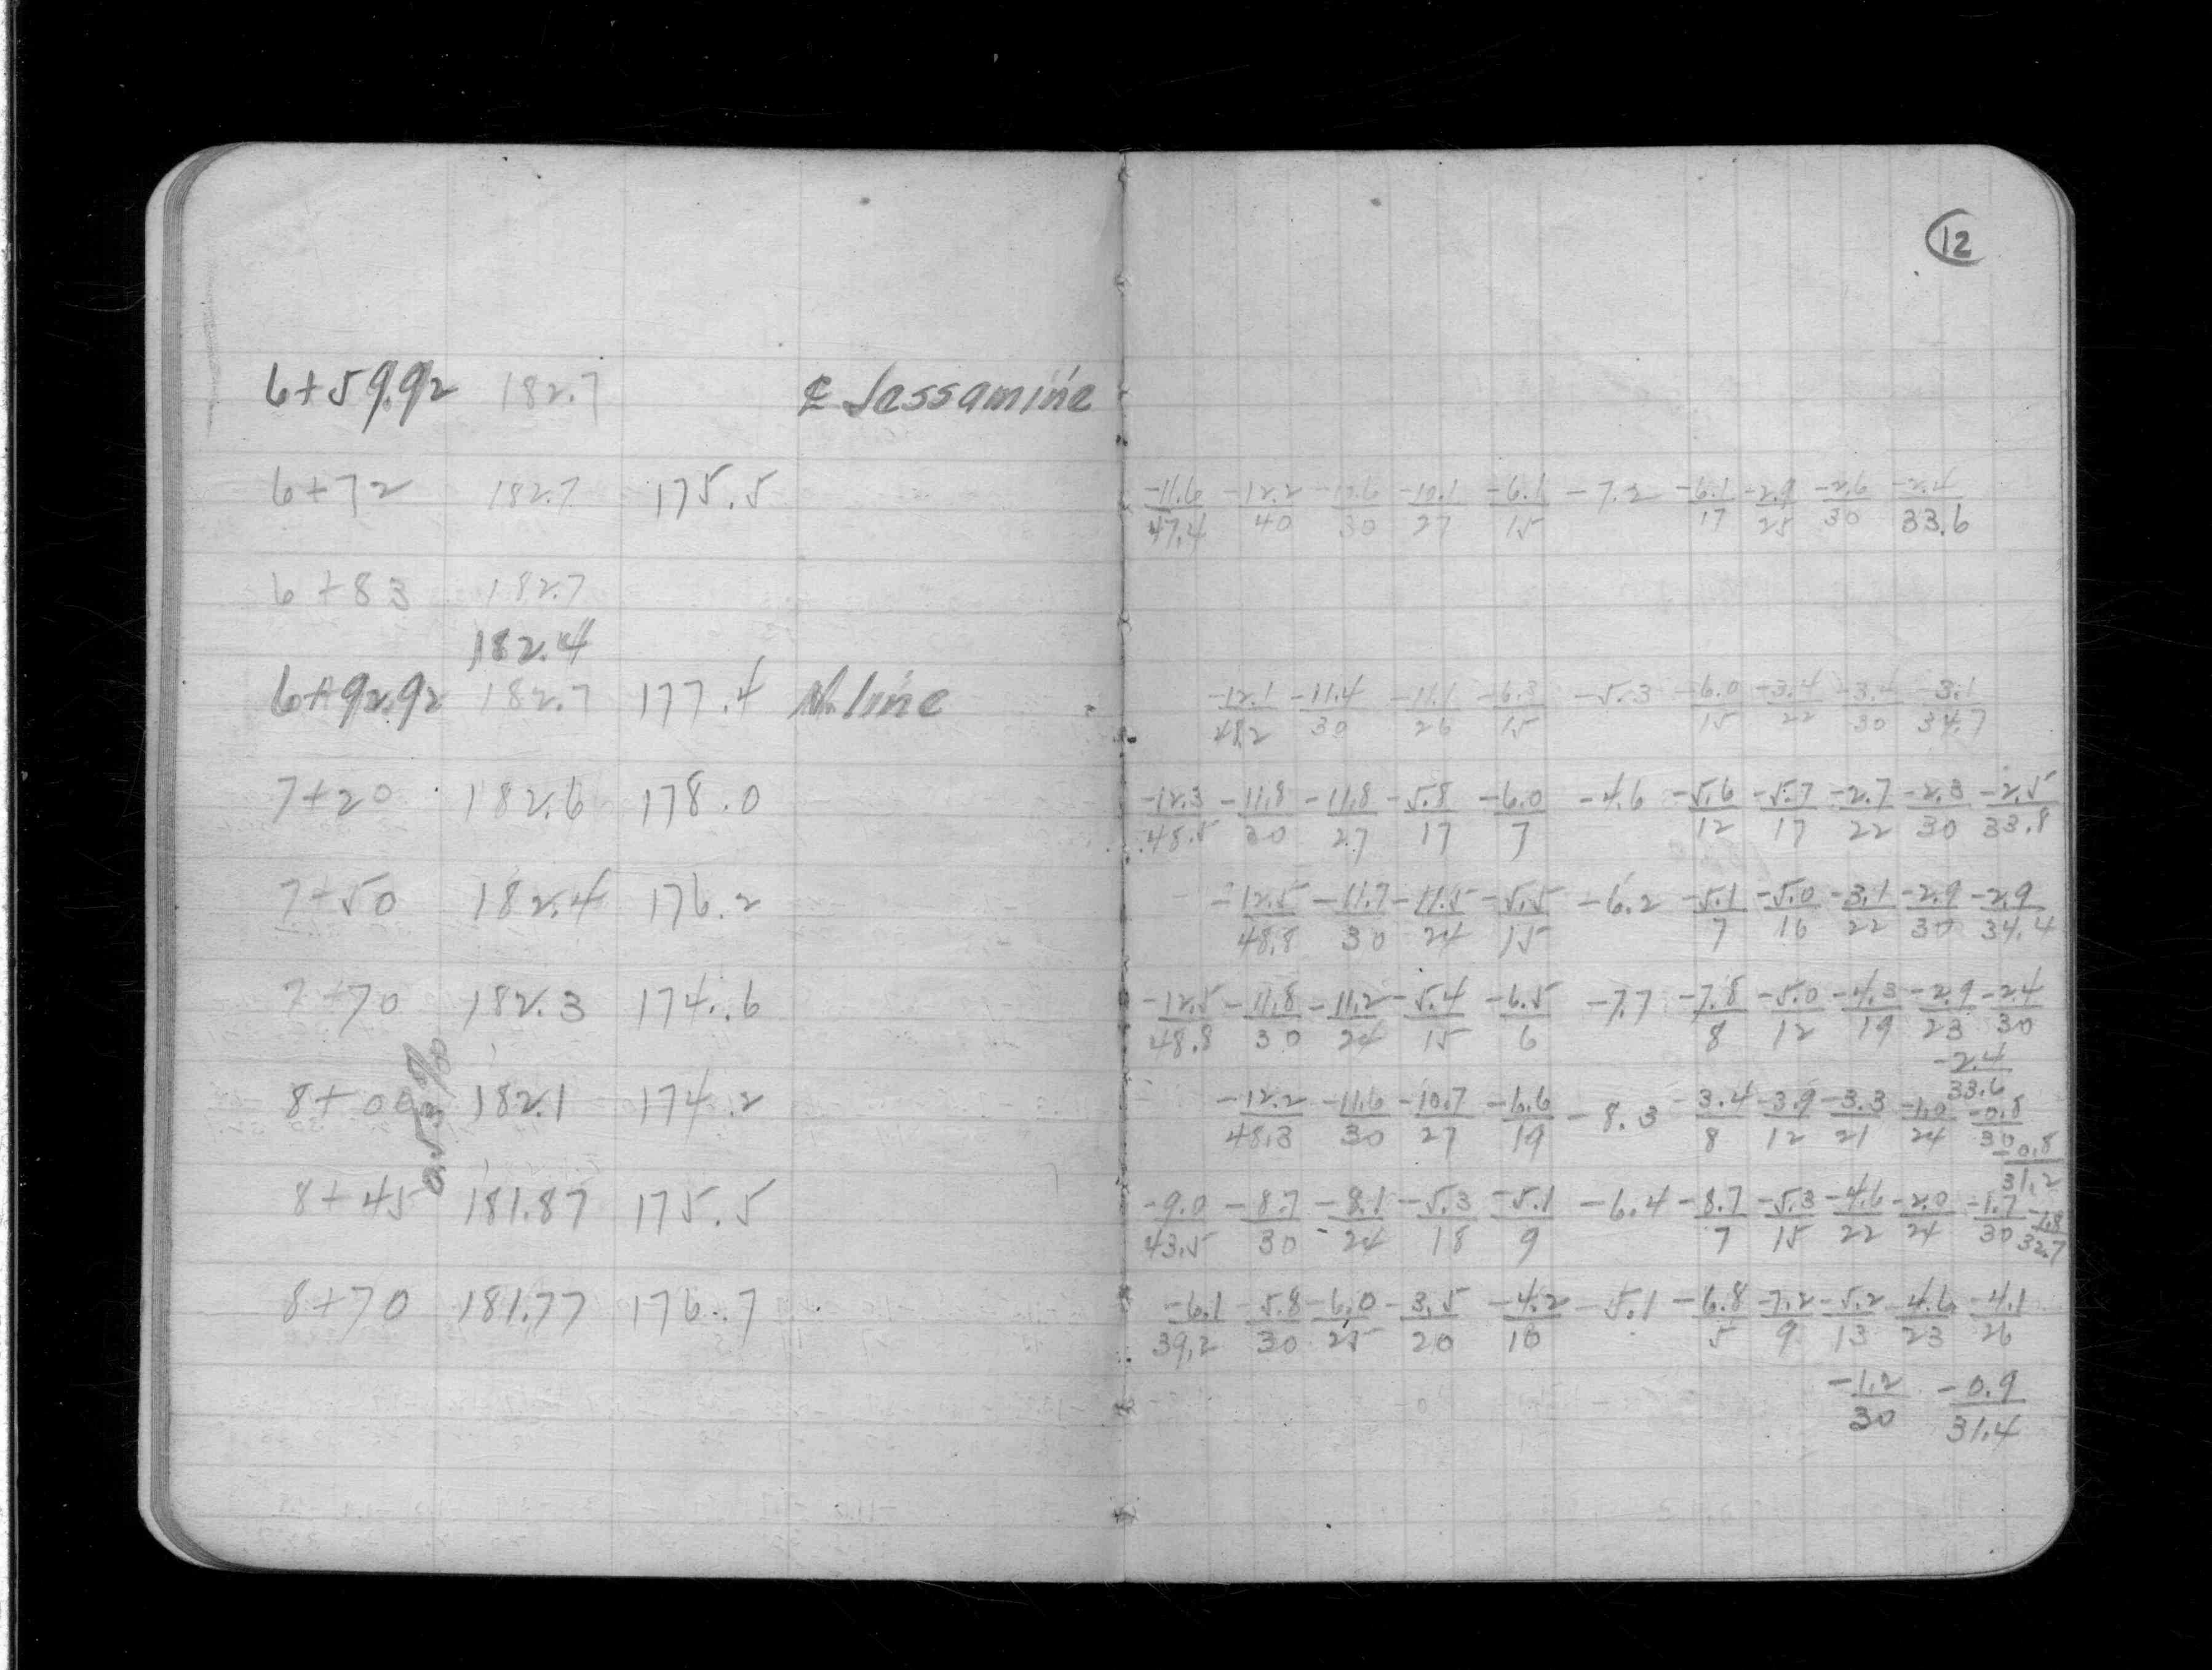 12
6+59.92 182.7 ℄ Jessamine
6+72 182.7 175.5 -11.6/47.4 -12.2/40 -12.6/30 -10.1/27 -6.1/15 -7.2 -6.1/17 -2.9/25 -2.6/30 -2.4/33.6
6+83 182.7
182.4
6+92.92 182.7 177.4 N. line -12.1/48.2 -11.4/30 -11.1/26 -6.3/15 -5.3 -6.0/15 -3.4/22 -3.4/30 -3.1/34.7
7+20 182.6 178.0 -12.3/48.5 -11.8/30 -11.8/27 -5.8/17 -6.0/7 -4.6 -5.6/12 -5.7/17 -2.7/22 -2.3/30 -2.5/33.8
7+50 182.4 176.2 -12.5/48.8 -11.7/30 -11.5/24 -5.5/15 -6.2 -5.1/7 -5.0/16 -3.1/22 -2.9/30 -2.9/34.4
7+70 182.3 174.6 -12.5/48.8 -11.8/30 -11.2/24 -5.4/15 -6.5/6 -7.7 -7.8/8 -5.0/12 -4.3/19 -2.9/23 -2.4/30
-2.4/33.6
0.53%
8+00 182.1 174.2 -12.2/48.3 -11.6/30 -10.7/27 -6.6/19 -8.3 -3.4/8 -3.9/12 -3.3/21 -1.0/24 -0.8/30
-0.8/31.2
8+45 181.87 175.5 -9.0/43.5 -8.7/30 -8.1/24 -5.3/18 -5.1/9 -6.4 -8.7/7 -5.3/15 -4.6/22 -2.0/24 -1.7/30 -1.8/32.7
8+70 181.77 176.7 -6.1/39.2 -5.8/30 -6.0/25 -3.5/20 -4.2/10 -5.1 -6.8/5 -7.2/9 -5.2/13 -4.6/23 -4.1/26
-1.2/30 -0.9/31.4